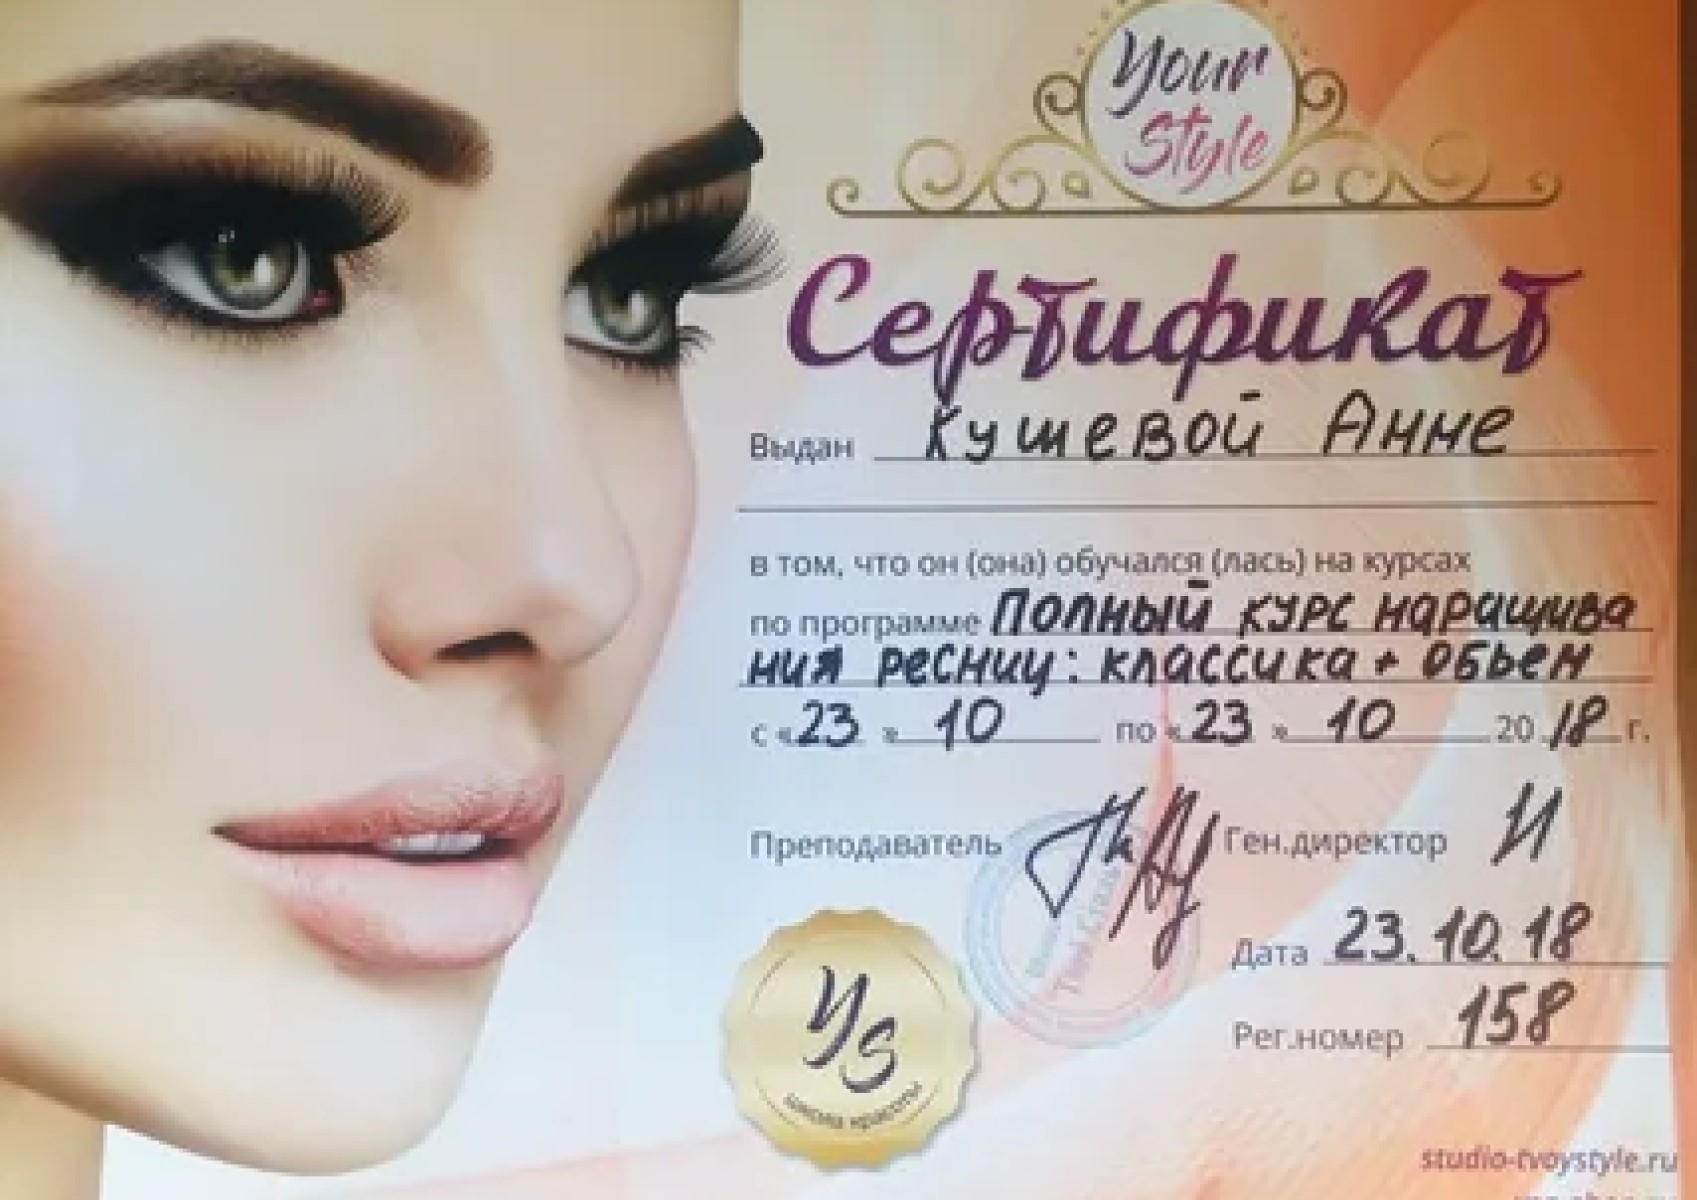 Your
Style
Сертификат
Выдан Кушевой Анне
в том, что он (она) обучался (лась) на курсах
по программе Полный курс наращива
ния ресниц: классика + обьем
с «23» 10 по «23» 10 2018 г.
Преподаватель Ген.директор
Дата 23.10.18
Рег.номер 158
YS
школа красоты
studio-tvoystyle.ru